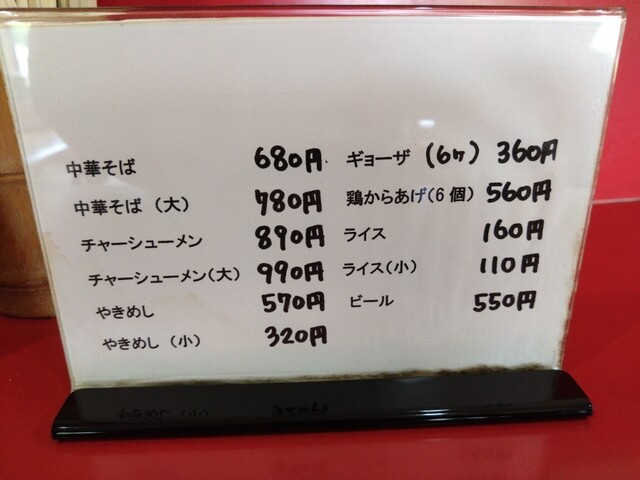 中華そば 680円
中華そば（大） 780円
チャーシューメン 890円
チャーシューメン（大） 990円
やきめし 570円
やきめし（小） 320円
ギョーザ （6ヶ） 360円
鶏からあげ（6個） 560円
ライス 160円
ライス（小） 110円
ビール 550円